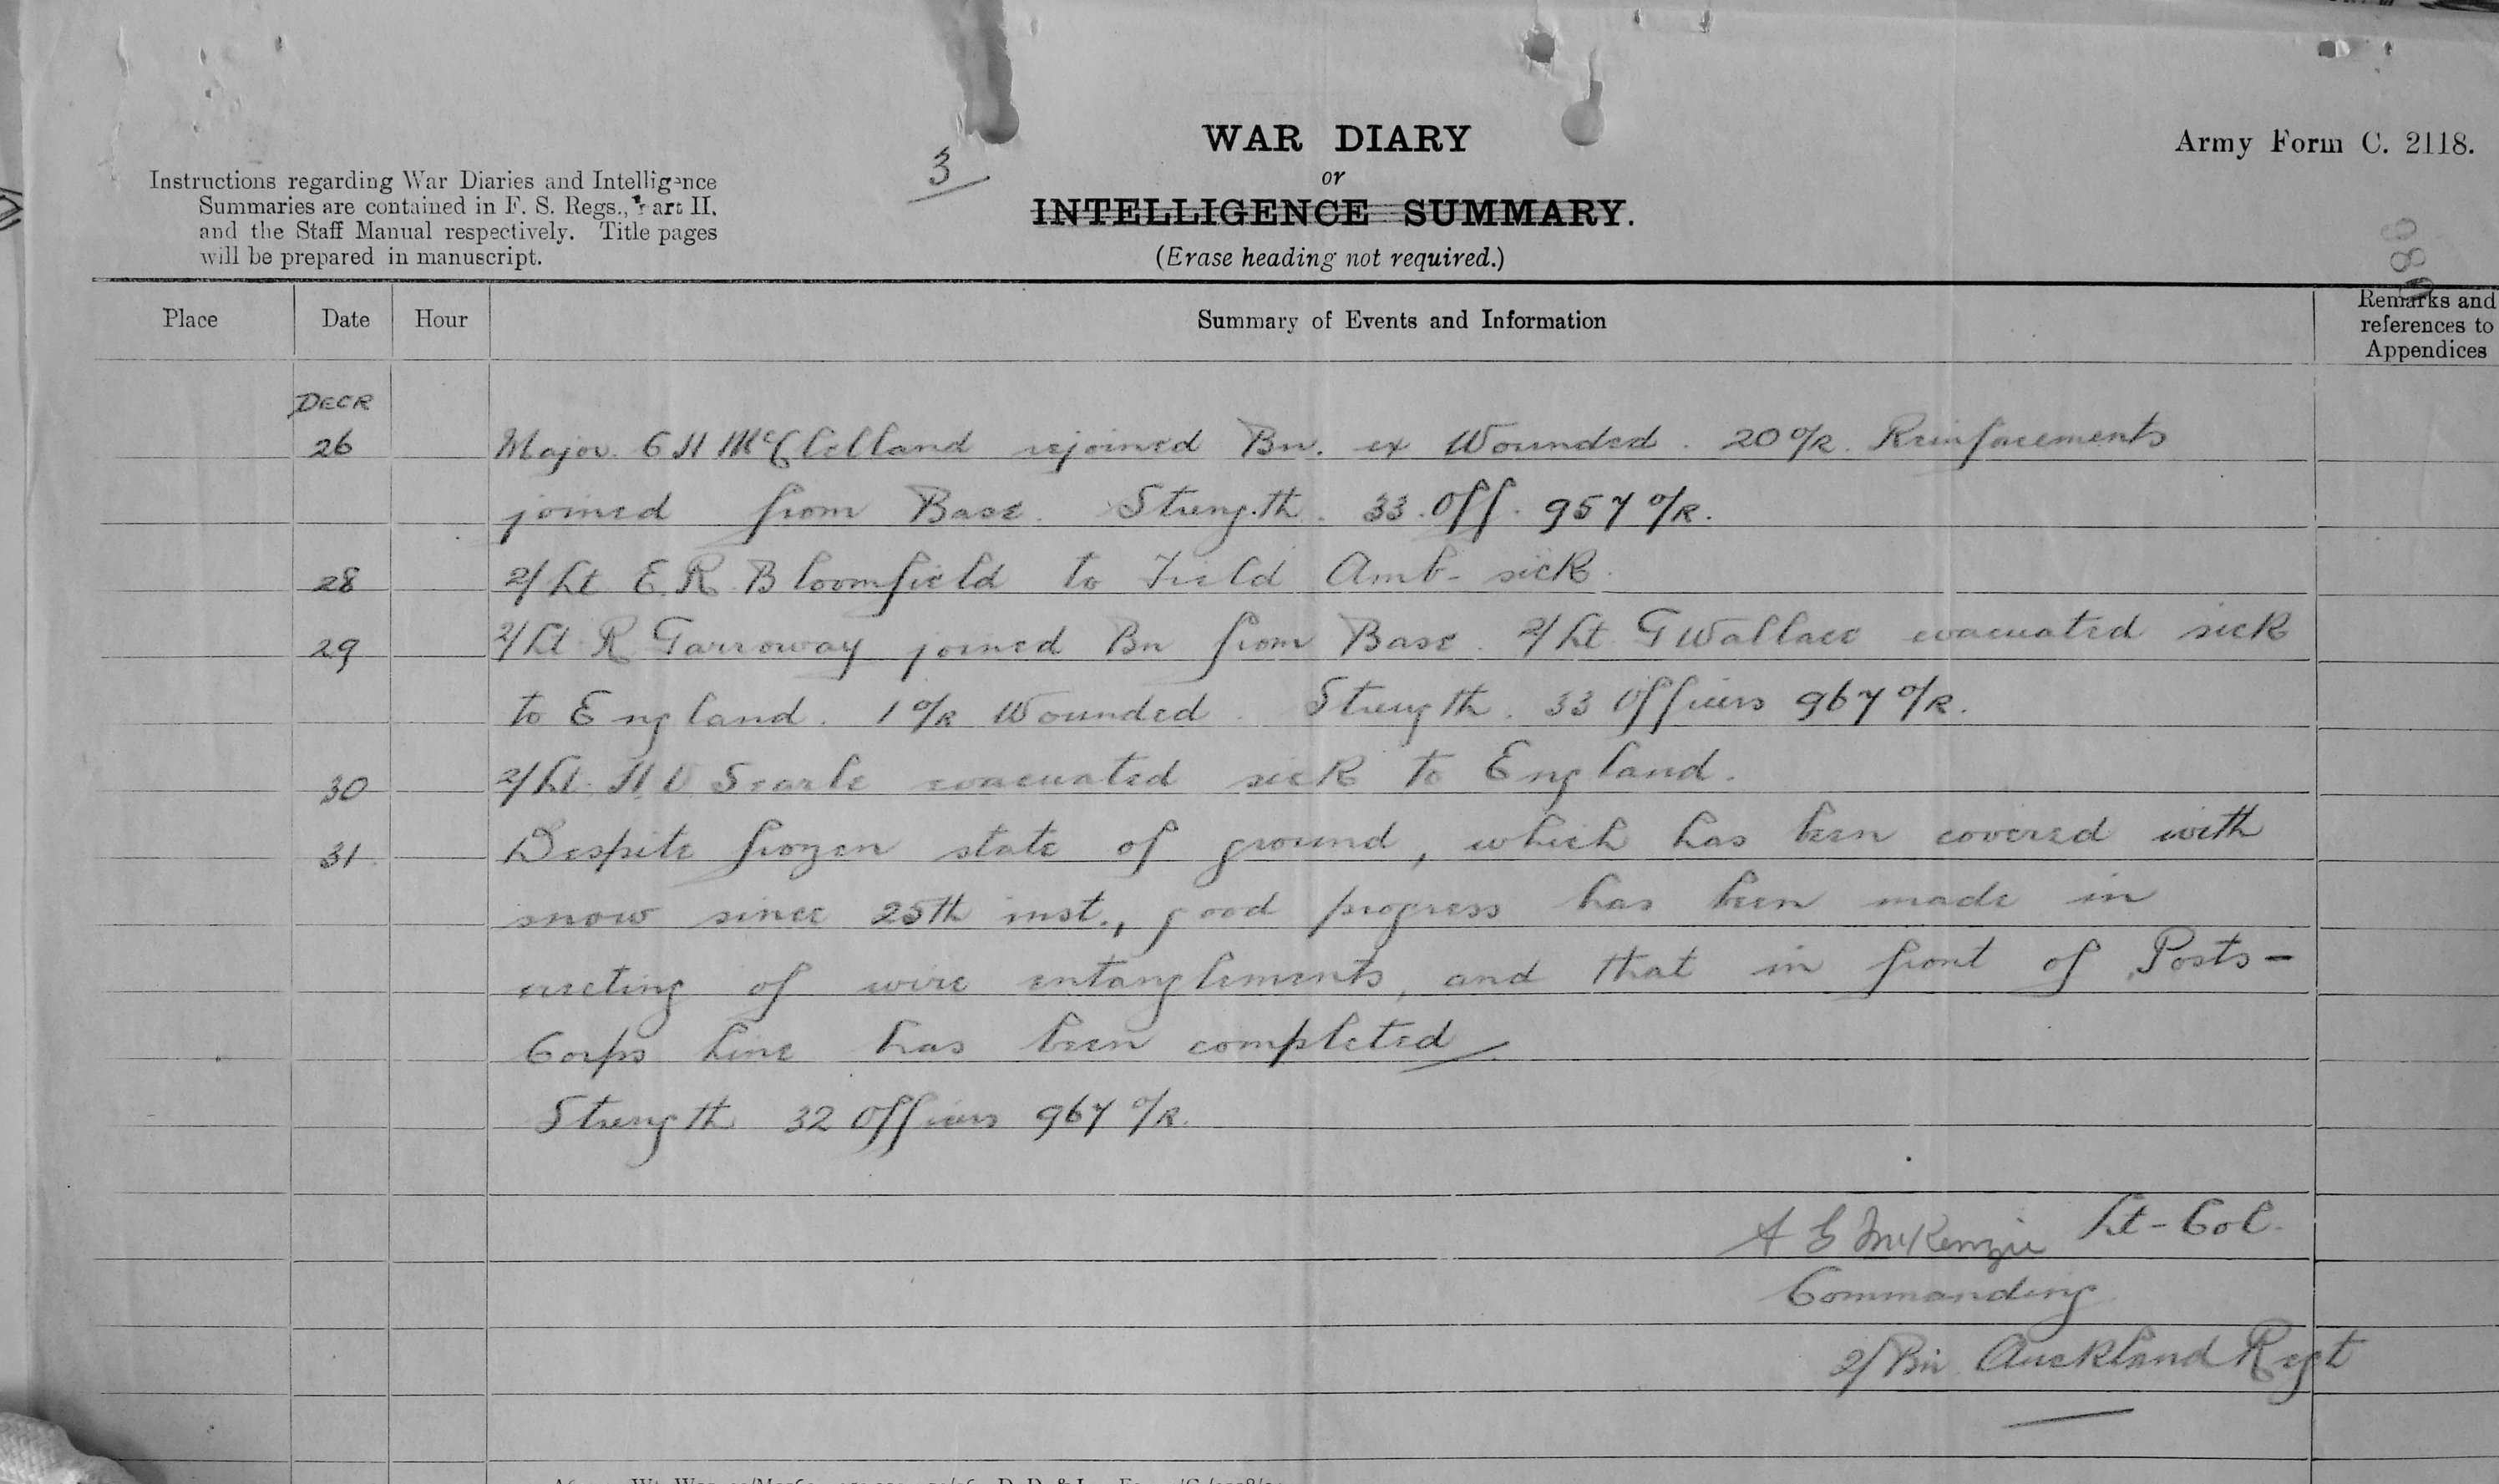 WAR DIARY
or
INTELLIGENCE SUMMARY.
(Erase heading not required.)
Army Form C. 2118.
Instructions regarding War Diaries and Intelligence
Summaries are contained in F. S. Regs., Part II.
and the Staff Manual respectively. Title pages
will be prepared in manuscript.
3
Place Date Hour Summary of Events and Information Remarks and references to Appendices
DECR
26 Major C H McClelland rejoined Bn. ex Wounded. 20 O/R. Reinforcements
joined from Base. Strength. 33 Off. 957 O/R.
28 2/Lt E.R. Bloomfield to Field Amb- sick.
29 2/Lt R. Garroway joined Bn from Base. 2/Lt G Wallace evacuated sick
to England. 1 O/R Wounded. Strength. 33 Officers 967 O/R.
30 2/Lt. H V Searle evacuated sick to England.
31 Despite frozen state of ground, which has been covered with
snow since 25th inst., good progress has been made in
erecting of wire entanglements, and that in front of Posts -
Corps Line has been completed
Strength 32 Officers 967 O/R.
McKenzie Lt-Col.
Commanding
2/Bn Auckland Regt